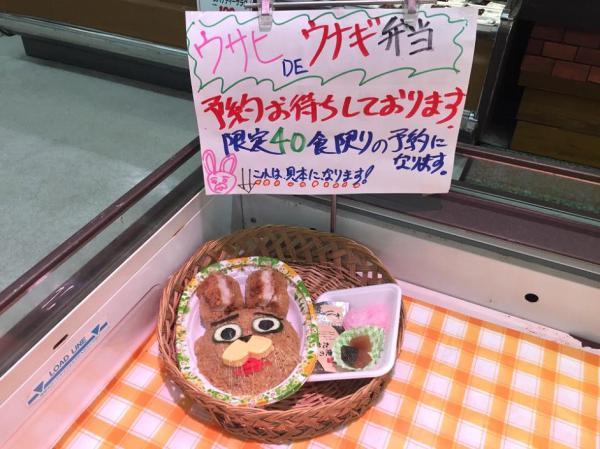 ウサヒ
DE
ウナギ弁当
予約お待ちしております
限定40食限りの予約に
なります。
↓これは見本になります!
LOAD LINE
LOAD LINE